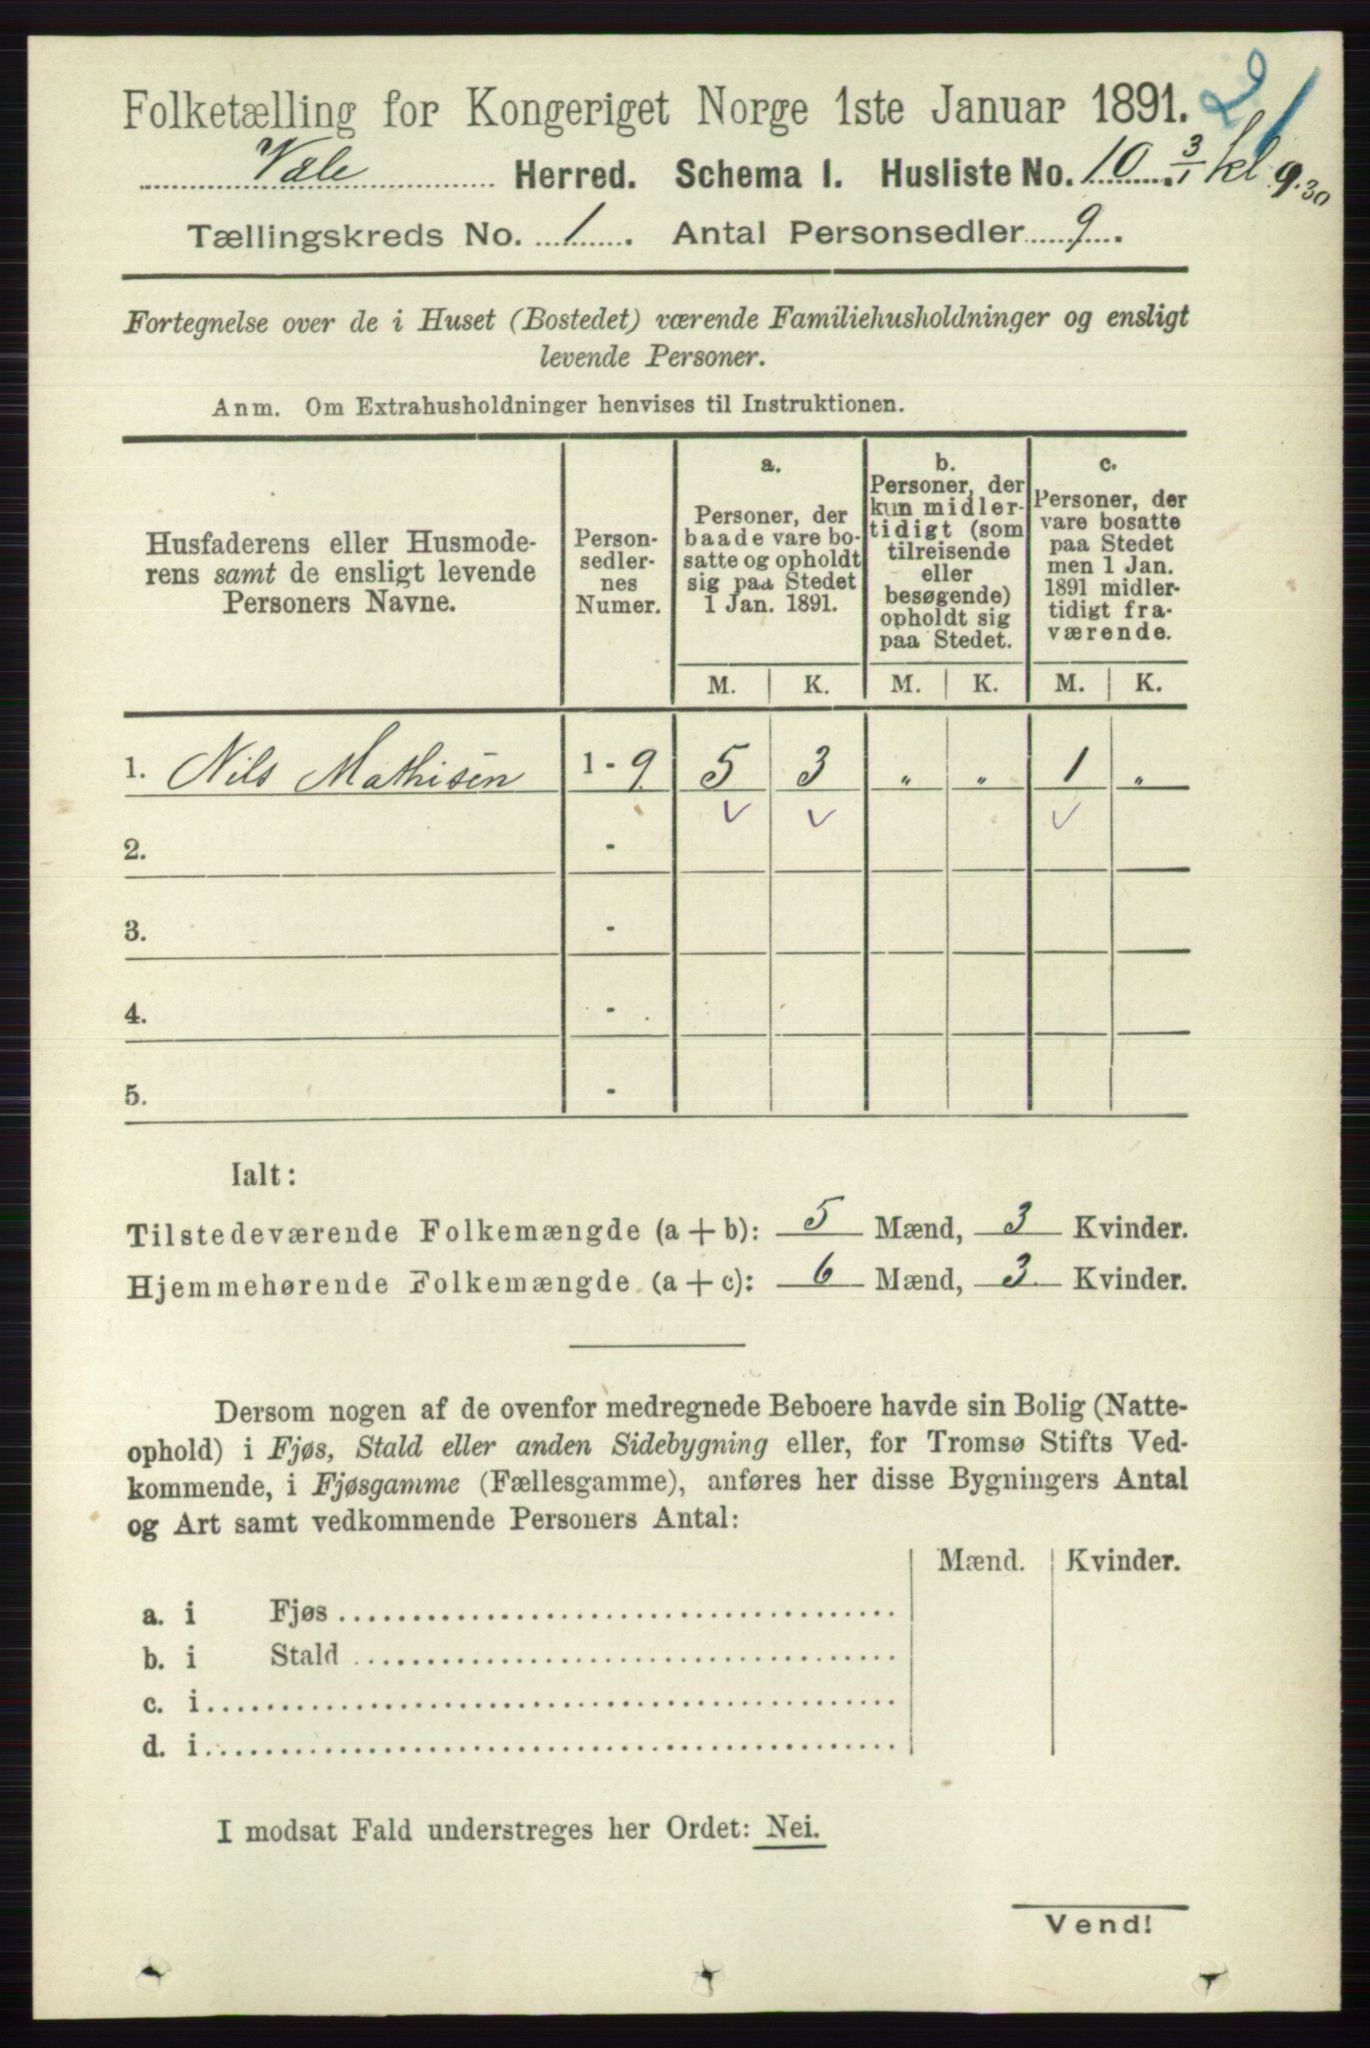 Folketælling for Kongeriget Norge 1ste Januar 1891.
Vale Herred. Schema I. Husliste No. 10. 3/1 kl 9.30
Tællingskreds No. 1. Antal Personsedler 9.
Fortegnelse over de i Huset (Bostedet) værende Familiehusholdninger og ensligt
levende Personer.
Anm. Om Extrahusholdninger henvises til Instruktionen.
Husfaderens eller Husmode-
rens samt de ensligt levende
Personers Navne.
Person-
sedler-
nes
Numer.
a.
Personer, der
baade vare bo-
satte og opholdt
sig paa Stedet
1 Jan. 1891.
b.
Personer, der
kun midler-
tidigt (som
tilreisende
eller
besøgende)
opholdt sig
paa Stedet.
c.
Personer, der
vare bosatte
paa Stedet
men 1 Jan.
1891 midler-
tidigt fra-
værende.
M. K. M. K. M. K.
1. Nils Mathisen 1 - 9 5 3 „ „ 1 „
2. -
3. -
4. -
5. -
Ialt:
Tilstedeværende Folkemængde (a + b): 5 Mænd, 3 Kvinder.
Hjemmehørende Folkemængde (a + c): 6 Mænd, 3 Kvinder.
Dersom nogen af de ovenfor medregnede Beboere havde sin Bolig (Natte-
ophold) i Fjøs, Stald eller anden Sidebygning eller, for Tromsø Stifts Ved-
kommende, i Fjøsgamme (Fællesgamme), anføres her disse Bygningers Antal
og Art samt vedkommende Personers Antal:
Mænd. Kvinder.
a. i Fjøs
b. i Stald
c. i
d. i
I modsat Fald understreges her Ordet: Nei.
Vend!